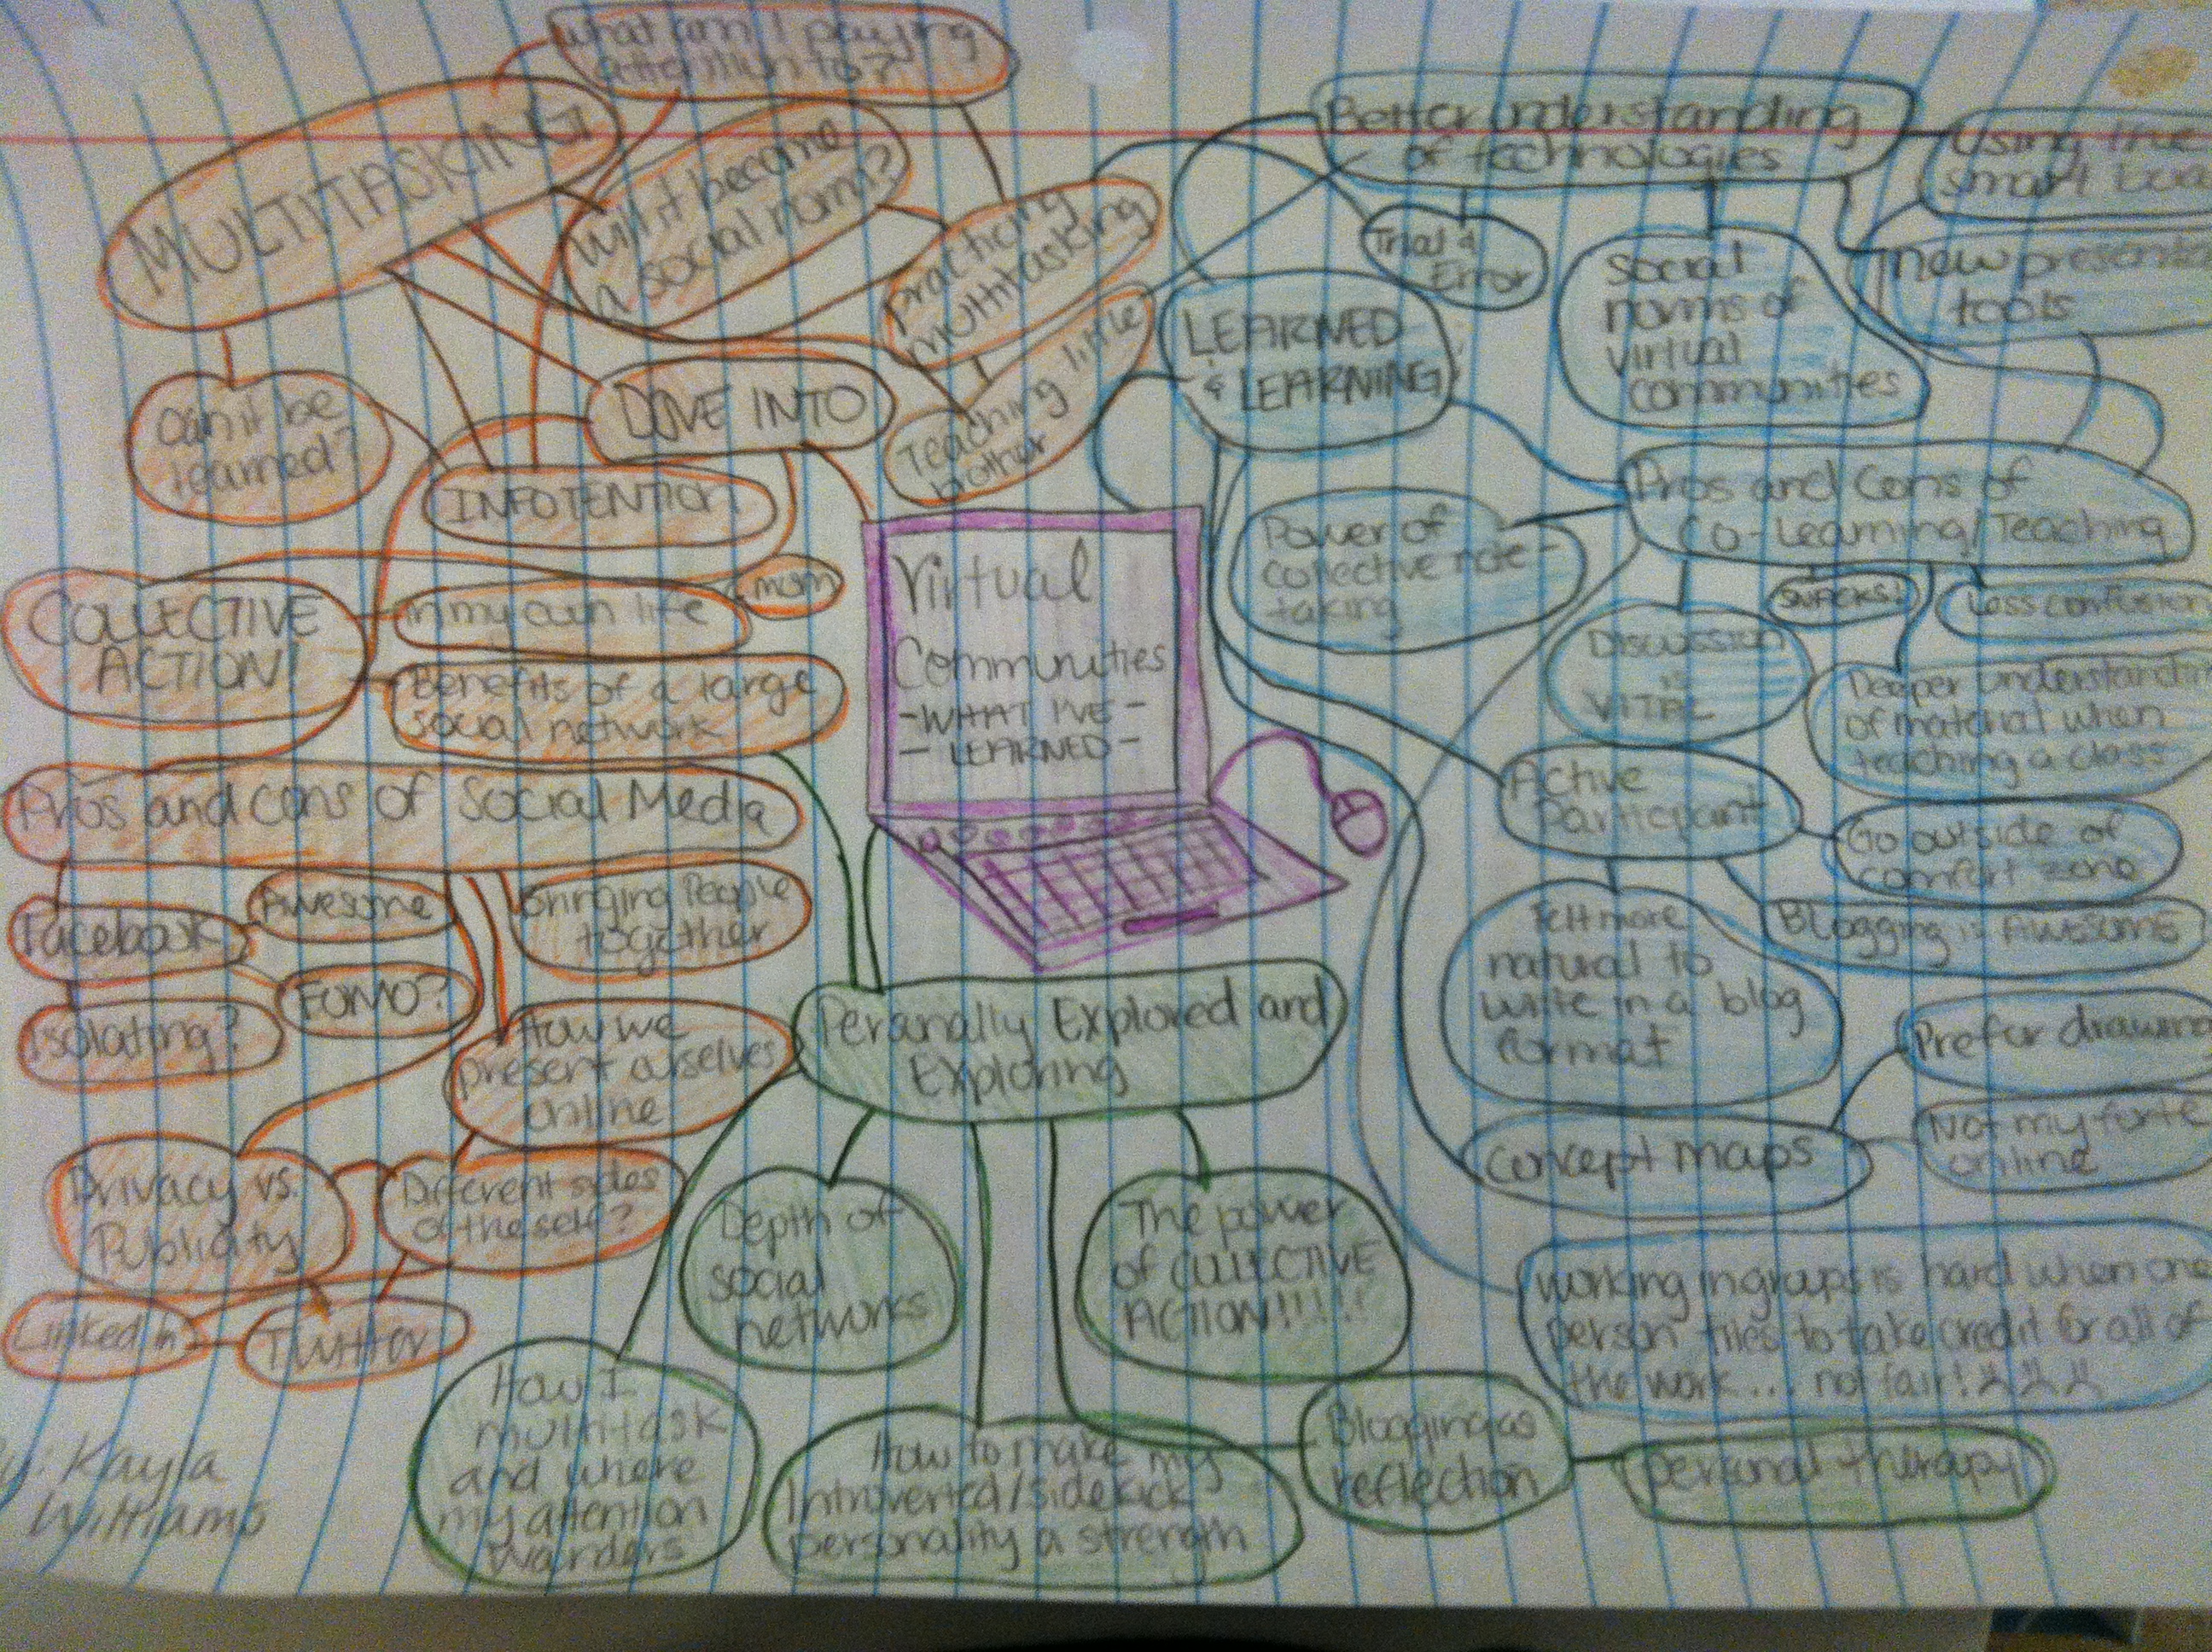 what am I paying
attention to?
MULTITASKING
Will it become
a social norm?
practicing
multitasking
Teaching little
brother
Can it be
learned?
DOVE INTO
INFOTENTION
COLLECTIVE
ACTION!
in my own life
mom
Benefits of a large
social network
Pros and cons of Social Media
Facebook
Awesome
FOMO?
Isolating?
Bringing People
together
How we
present ourselves
online
Privacy vs.
Publicity
Different sides
of the self?
Linked In
Twitter
Virtual
Communities
- WHAT I'VE -
- LEARNED -
Better understanding
of technologies
Using the
smart boa
Trial &
Error
Social
norms of
virtual
communities
New presenta
tools
LEARNED
& LEARNING
Pros and Cons of
Co-Learning/Teaching
Power of
collective note-
taking
Discussion
is
VITAL
SNACKS!
Less confusion
Deeper understandin
of material when
teaching a class
Active
Participant
Go outside of
comfort zone
Blogging is AWESOME
Felt more
natural to
write in a blog
format
Concept maps
Prefer drawing
Not my forte
online
Working in groups is hard when one
person tries to take credit for all of
the work... not fair!
Personally Explored and
Exploring
Depth of
social
networks
The power
of COLLECTIVE
ACTION!!!!!
How I
multi-task
and where
my attention
wanders
How to make my
Introverted/sidekick
personality a strength
Blogging as
reflection
personal therapy
Kayla
Williams